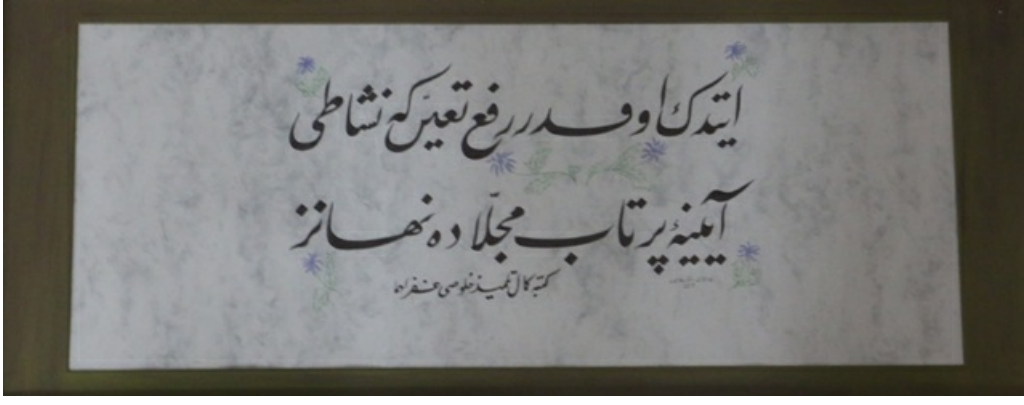 ایتدك او قدر رفع تعیّن كه نشاطی
آیینۀ پرتاب مجلّا ده نهانز
كتبه كمال تلمیذ خلوصی غفر لهما